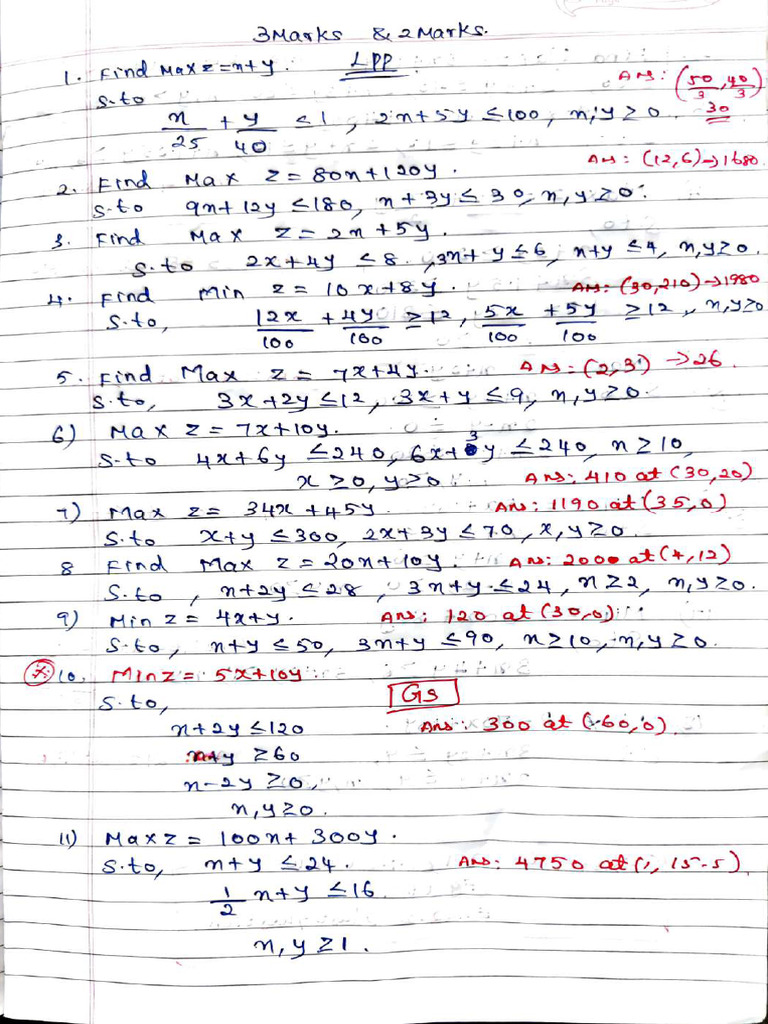 3Marks & 2Marks.
LPP
1. Find Max z = x+y. Ans: (50/3, 40/3)
S.to x/25 + y/40 ≤ 1, 2x+5y ≤ 100, x,y ≥ 0. 30
2. Find Max z = 80x+120y. Ans: (12,6) → 1680
S.to 9x+12y ≤ 180, x+3y ≤ 30, x,y ≥ 0.
3. Find Max z = 2x+5y.
S.to 2x+4y ≤ 8, 3x+y ≤ 6, x+y ≤ 4, x,y ≥ 0.
4. Find Min z = 10x+8y. Ans: (30,210) → 1980
S.to, 12x/100 + 4y/100 ≥ 12, 5x/100 + 5y/100 ≥ 12, x,y ≥ 0
5. Find Max z = 7x+4y. Ans: (2,3) → 26
S.to, 3x+2y ≤ 12, 3x+y ≤ 9, x,y ≥ 0.
6) Max z = 7x+10y.
S.to 4x+6y ≤ 240, 6x+3y ≤ 240, x ≥ 10,
x ≥ 0, y ≥ 0 Ans: 410 at (30,20)
7) Max z = 34x+45y Ans: 1190 at (35,0)
S.to x+y ≤ 300, 2x+3y ≤ 70, x,y ≥ 0.
8 Find Max z = 20x+10y. Ans: 2000 at (4,12)
S.to, x+2y ≤ 28, 3x+y ≤ 24, x ≥ 2, x,y ≥ 0.
9) Min z = 4x+y. Ans: 120 at (30,0)
S.to, x+y ≤ 50, 3x+y ≤ 90, x ≥ 10, x,y ≥ 0.
10. Min z = 5x+10y
S.to, GS
x+2y ≤ 120 Ans: 300 at (60,0)
x+y ≥ 60
x-2y ≥ 0,
x,y ≥ 0.
11) Max z = 100x+300y.
S.to, x+y ≤ 24. Ans: 4750 at (1, 15.5)
1/2 x+y ≤ 16
x,y ≥ 1.